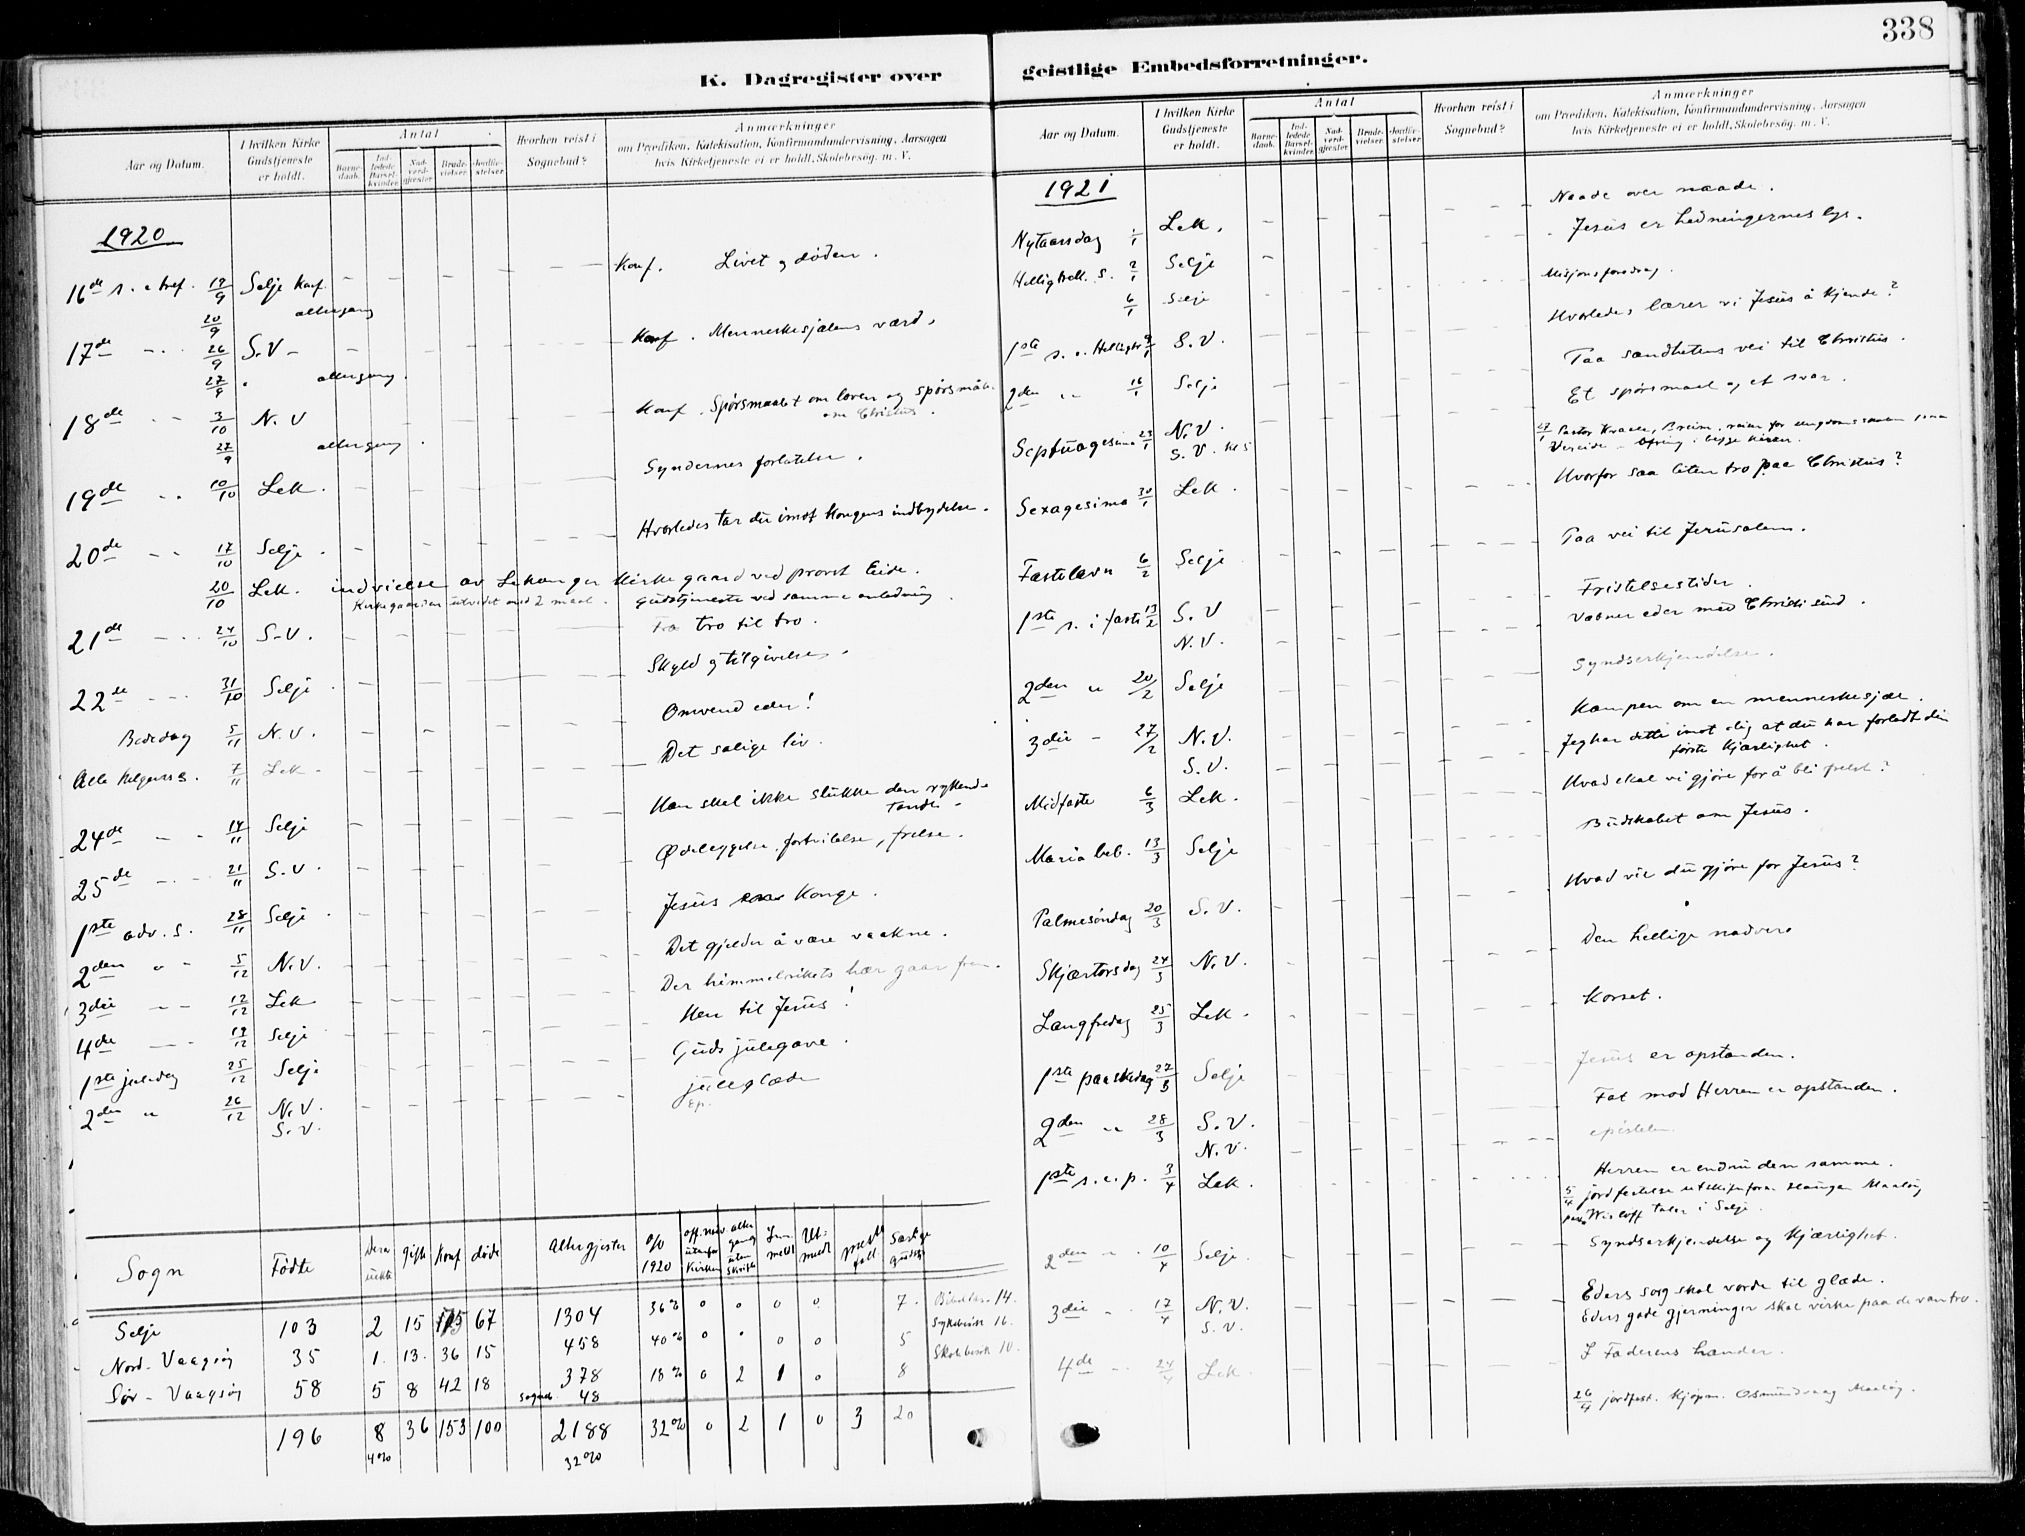 338
K. Dagregister over
Aar og Datum.
I hvilken Kirke Gudstjeneste er holdt.
Antal
Barne-daab.
Ind-ledede Barsel-kvinder
Nad-verd-gjester
Brude-vielser
Jordfæ-stelser
Hvorhen reist i Sognebud?
Anmærkninger
om Prædiken, Katekisation, Konfirmandundervisning, Aarsagen
hvis Kirketjeneste ei er holdt, Skolebesøg. m. V.
1920
16de s. e. tref. 19/9 Selje Konf. Konf. Livet og døden.
20/9 altergang
17de 26/9 S.V. Konf. Menneskesjælens værd.
27/9 altergang.
18de 3/10 N.V Konf. Spørsmaalet om loven og spørsmål
om Christus.
27/9 altergang.
19de 10/10 Lek. Syndernes forlatelse.
20de 17/10 Selje. Hvorledes tar du imot Kongens indbydelse.
20/10 Lek. indvielse av Lekanger Kirkegaard ved provst Eide.
Kirkegaarden utvidet med 2 maal. Gudstjeneste ved samme anledning.
21de 24/10 S.V. Fra tro til tro.
22de 31/10 Selje. Skyld og tilgivelse.
Bededag 5/11 N.V. Omvend eder!
Alle helgens s. 7/11 Lek. Det salige liv.
24de 14/11 Selje Han skal ikke slukke den rykende
tande.
25de 21/11 S.V. Ødelæggelse, fortvilelse, frelse.
1ste adv. s. 28/11 Selje. Jesus vor Konge.
2den 5/12 N.V. Det gjelder å være vaakne.
3die 12/12 Lek Der himmelrikets hær gaar frem.
4de 19/12 Selje Hen til Jesus!
1ste juledag 25/12 Selje Guds julegave.
2den 26/12 N.V. juleglæde
S.V. Ep.
Sogn Fødte gifte Konf døde Altergjester % 1920 off. utenfor Kirken altergang uten skrifte Inn-meldt Ut-meldt
Selje 103 2 15 67 1304 36% 0 0 0 0 7. 14.
Nord-Vaagsøy 35 1. 13. 36 15 458 40% 0 0 0 5 Sykebesøk 16.
Sør-Vaagsøy 58 5 8 42 18 378 18% 0 2 1 0 8 Skolebesøk 10.
sogneb. 48
196 8 36 153 100 2188 32% 0 2 1 0 3 20
4% 32%
geistlige Embedsforretninger.
Aar og Datum.
I hvilken Kirke Gudstjeneste er holdt.
Antal
Barne-daab.
Ind-ledede Barsel-kvinder
Nad-verd-gjester
Brude-vielser
Jordfæ-stelser
Hvorhen reist i Sognebud?
Anmærkninger
om Prædiken, Katekisation, Konfirmandundervisning, Aarsagen
hvis Kirketjeneste ei er holdt, Skolebesøg. m. V.
1921
Nytaarsdag 1/1 Lek. Naade over naade.
Helligtrek. s. 2/1 Selje Jesus er hedningernes lys.
6/1 Selje Misjonsforedrag.
1ste s. e. Helligtr 9/1 S.V. Hvorledes lærer vi Jesus å kjende?
2den 16/1 Selje Paa sandhetens vei til Christus.
Septuagesima 23/1 N.V. Et spørsmaal og et svar.
S.V. kl 5
Sexagesima 30/1 Lek. Hvorfor saa liten tro paa Christus?
Fastelavn 6/2 Selje Paa vei til Jerusalem.
1ste s. i faste 13/2 S.V Fristelsestider.
N.V. Væbner eder med Christi sind.
2den 20/2 Selje Syndserkjendelse.
3die 27/2 N.V. Kampen om en menneskesjæl.
S.V. Jeg har dette imot dig at du har forladt din
første kjærlighet.
Midfaste 6/3 Lek. Hvad skal vi gjøre for å bli frelst?
Maria beb. 13/3 Selje Budskabet om Jesus.
Palmesøndag 20/3 S.V. Hvad vil du gjøre for Jesus?
Skjærtorsdag 24/3 N.V. Den hellige nadvere
Langfredag 25/3 Lek. Korset.
1ste paaskedag 27/3 Selje Jesus er opstanden.
2den 28/3 S.V. Fat mod Herren er opstanden.
N.V. epistelen
1ste s. e. p. 3/4 Lek. Herren er endnu den samme.
5/4 jordfestelse Maaløy
Wisløff taler i Selje.
2den 10/4 Selje. Syndserkjendelse og kjærlighet.
3die 17/4 N.V. Eders sorg skal vorde til glæde.
S.V. Eders gode gjerninger skal virke paa de vantro.
4de 24/4 Lek. I Faderens hænder.
26/4 jordfest. Kjøpm. Osmundsvaag Maaløy.